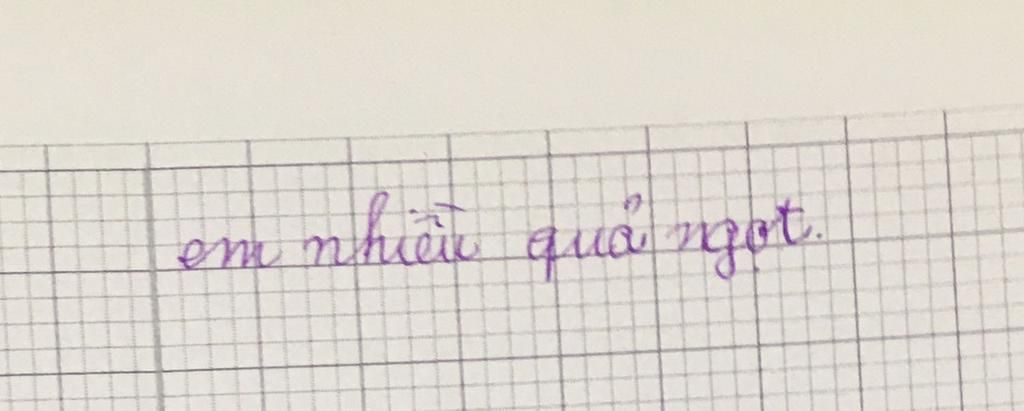 em nhiều quả ngọt.